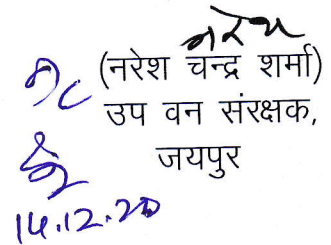 नरेश
(नरेश चन्द्र शर्मा)
उप वन संरक्षक,
जयपुर
14.12.20